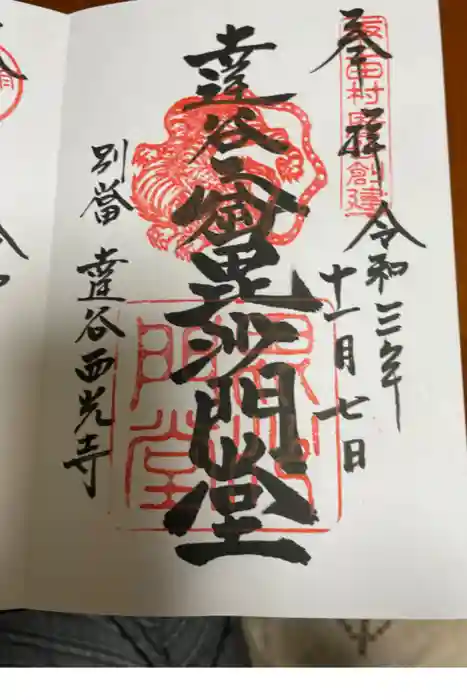 坂上田村麿創建
奉拝 令和三年
十一月七日
達谷 毘沙門堂
毘沙門堂
別當 達谷西光寺